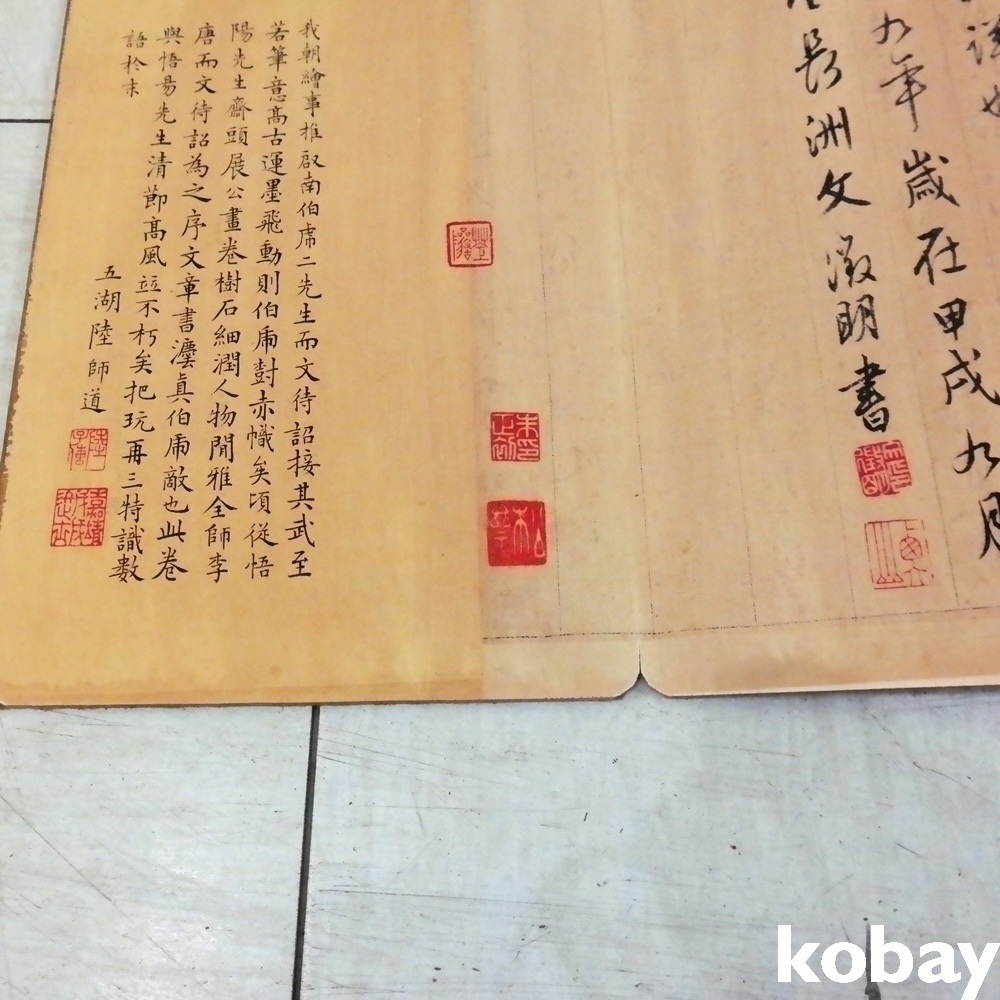 九月
九年歲在甲戌
長洲文徵明書
我朝繪事推啟南伯虎二先生而文待詔接其武至
若筆意高古運墨飛動則伯虎對赤幟矣頃從悟
陽先生齋頭展公畫卷樹石細潤人物閒雅全師李
唐而文待詔為之序文章書灋真伯虎敵也此卷
與悟昜先生清節高風竝不朽矣把玩再三特識數
語於末
五湖陸師道
kobay